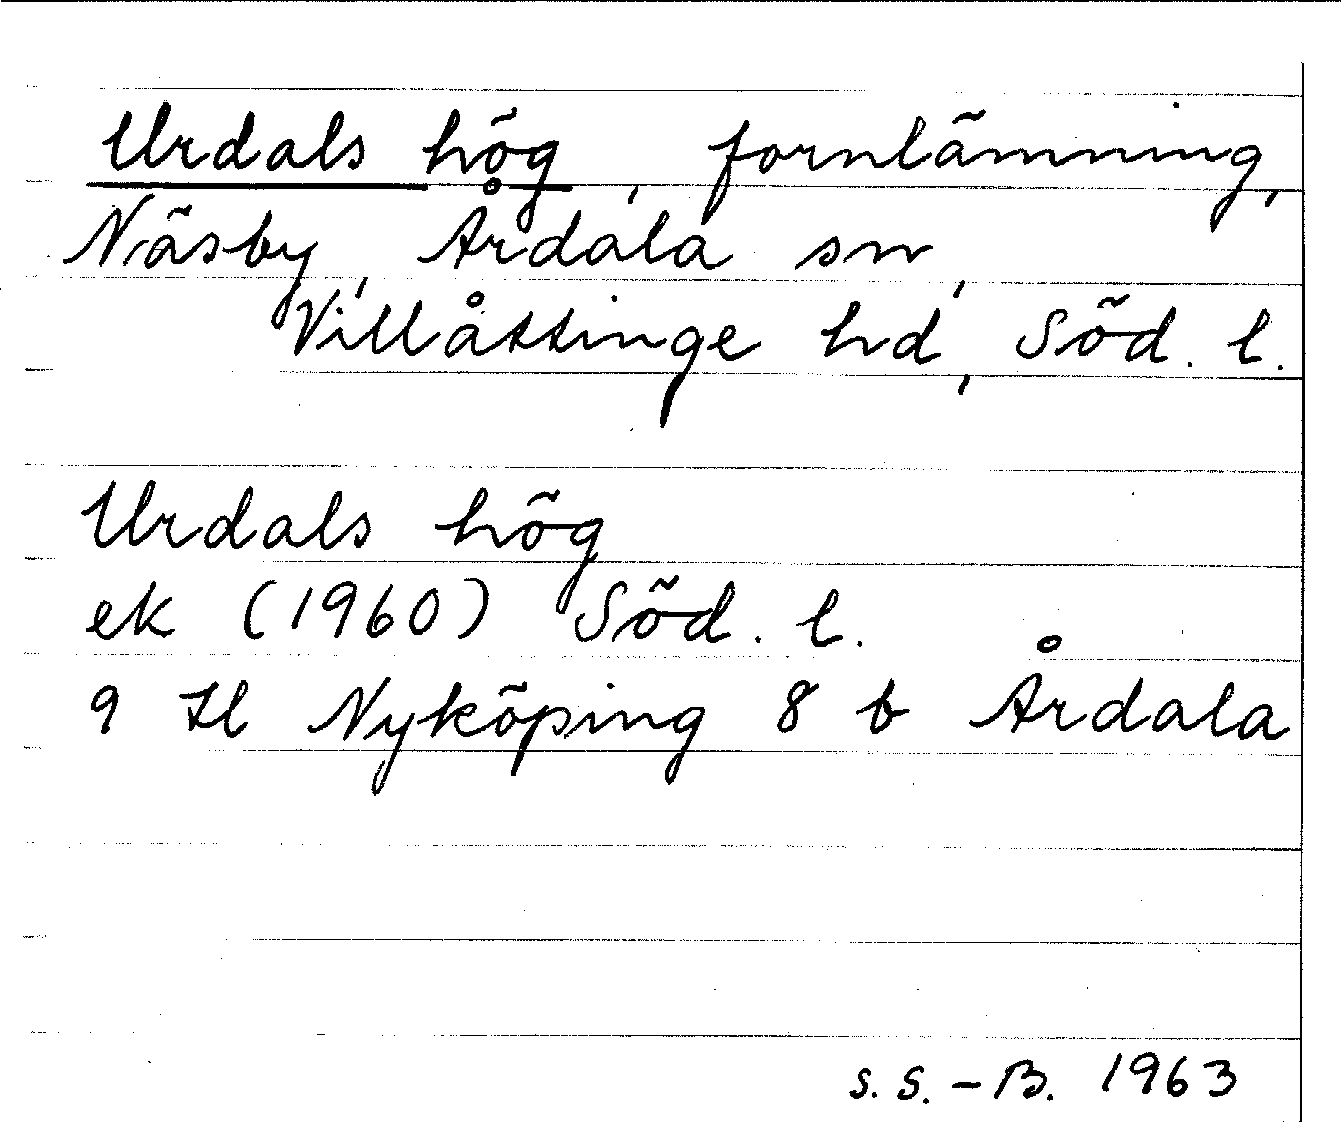 Urdals hög, fornlämning,
Näsby, Årdala sn,
Villåttinge hd, Söd. l.
Urdals hög
ek (1960) Söd. l.
9 H Nyköping 8 b Årdala
S. S. - B. 1963